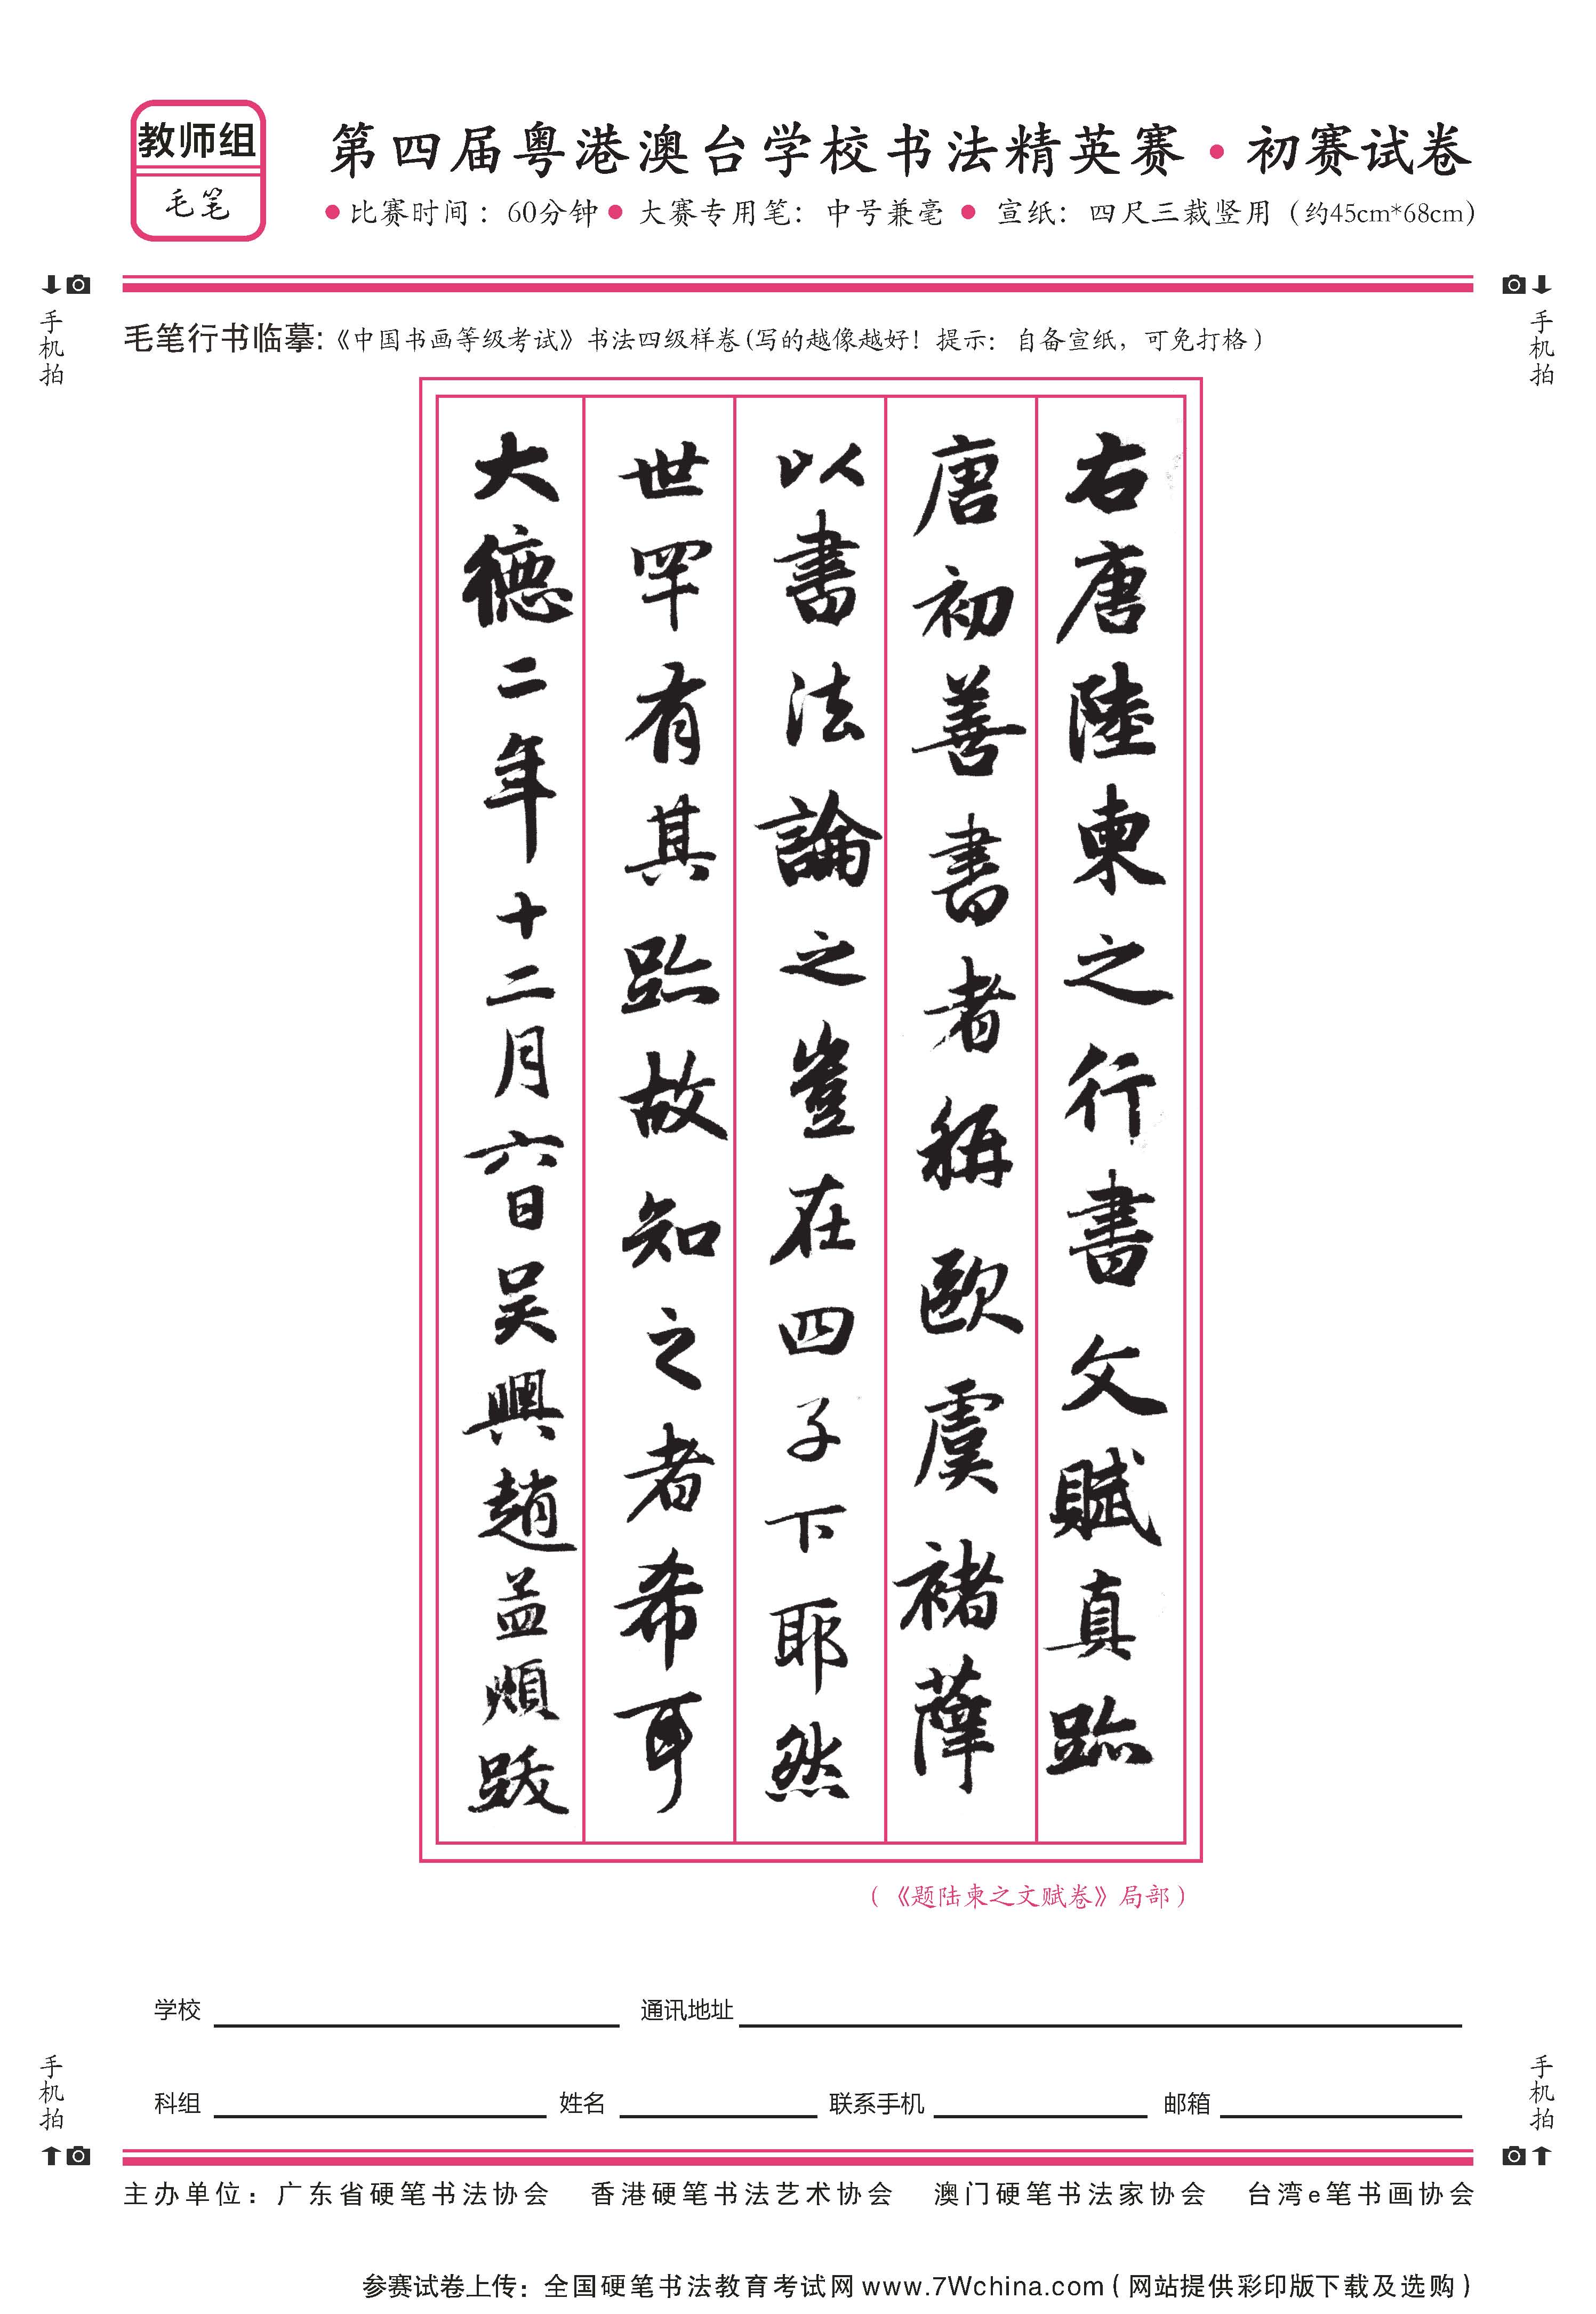 教师组
毛笔
第四届粤港澳台学校书法精英赛·初赛试卷
●比赛时间：60分钟● 大赛专用笔：中号兼毫 ● 宣纸：四尺三裁竖用（约45cm*68cm）
手机拍
手机拍
毛笔行书临摹:《中国书画等级考试》书法四级样卷(写的越像越好！提示：自备宣纸，可免打格)
右唐陸柬之行書文賦真跡
唐初善書者稱歐虞褚薛
以書法論之豈在四子下耶然
世罕有其跡故知之者希耳
大德二年十二月六日吴興趙孟頫跋
（《题陆柬之文赋卷》局部）
学校 通讯地址
科组 姓名 联系手机 邮箱
手机拍
手机拍
主办单位：广东省硬笔书法协会 香港硬笔书法艺术协会 澳门硬笔书法家协会 台湾e笔书画协会
参赛试卷上传：全国硬笔书法教育考试网 www.7Wchina.com（网站提供彩印版下载及选购）